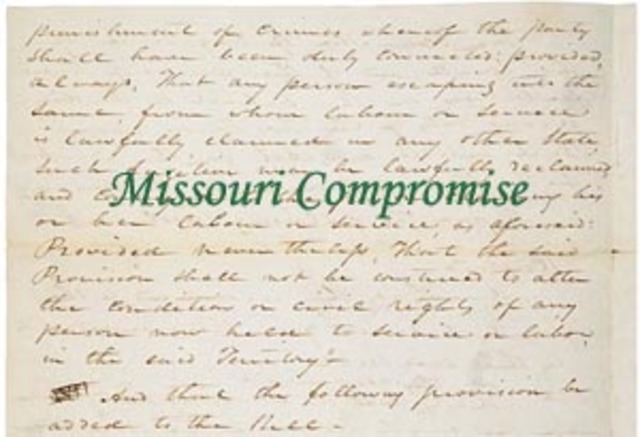 punishment of crimes whereof the party
shall have been duly convicted: provided,
always, That any person escaping into the
same, from whom labour or service
is lawfully claimed in any other State,
such fugitive may be lawfully reclaimed
and
Missouri Compromise
his
or her labour or service, as aforesaid:
Provided nevertheless, That the said
Provision shall not be construed to alter
the condition or civil rights of any
person now held to service or labor
in the said Territory"
And that the following provision be
added to the Bill-